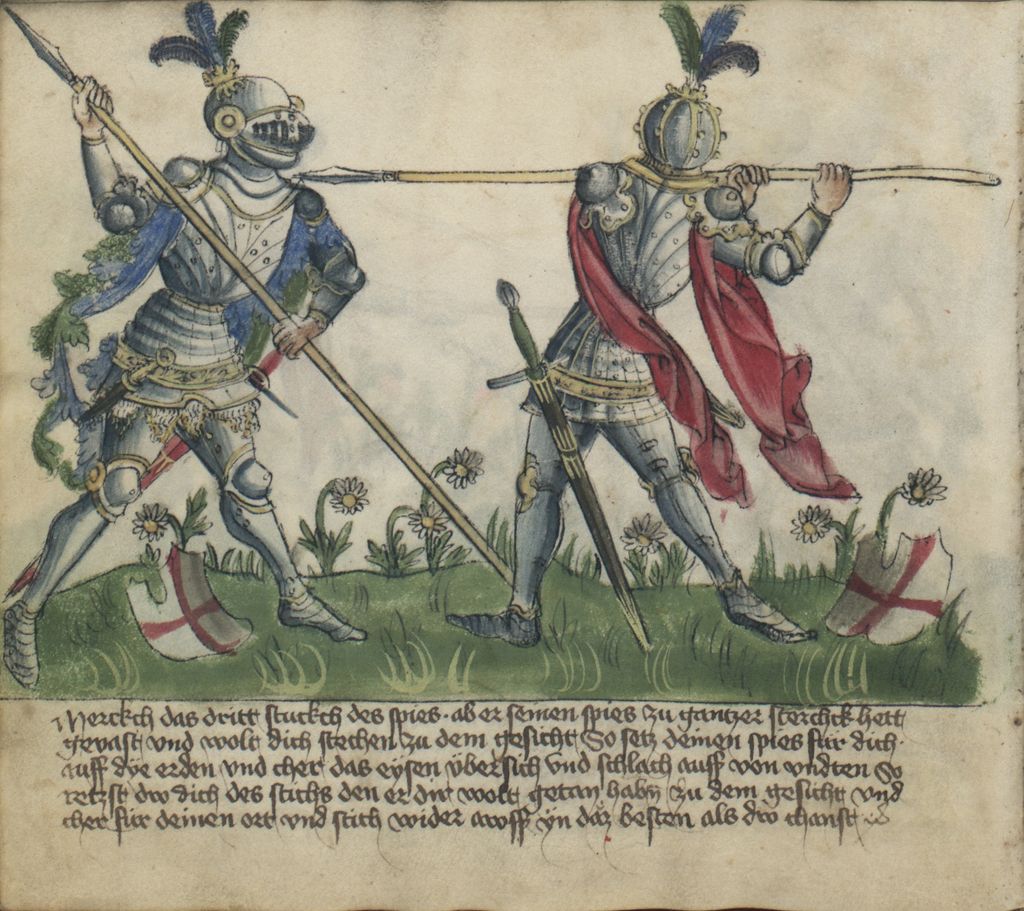 Merckch das dritt stuckch des spies · ab er seinen spies zu gantzer sterchk hett
gevast vnd wolt dich stechen zu dem gesicht So setz deinen spies für dich ·
auff dye erden vnd cher das eysen vbersich vnd schlach auff von vndten So
retzst dw dich des stichs den er dir wolt getan habn zu dem gesicht vnd
cher für deinen ort vnd stich wider awff yn der besten als dw chanst